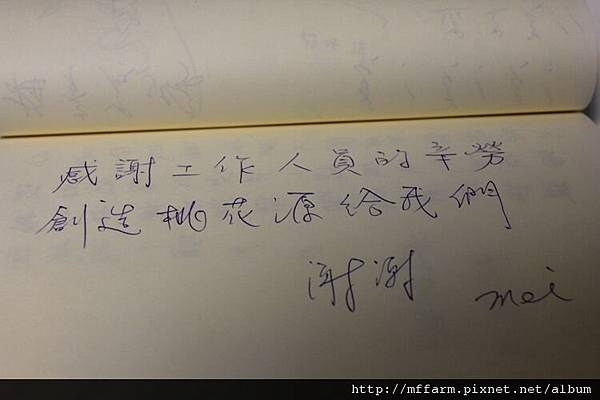 感謝工作人員的辛勞
創造桃花源給我們
謝謝 mei
http://mffarm.pixnet.net/album